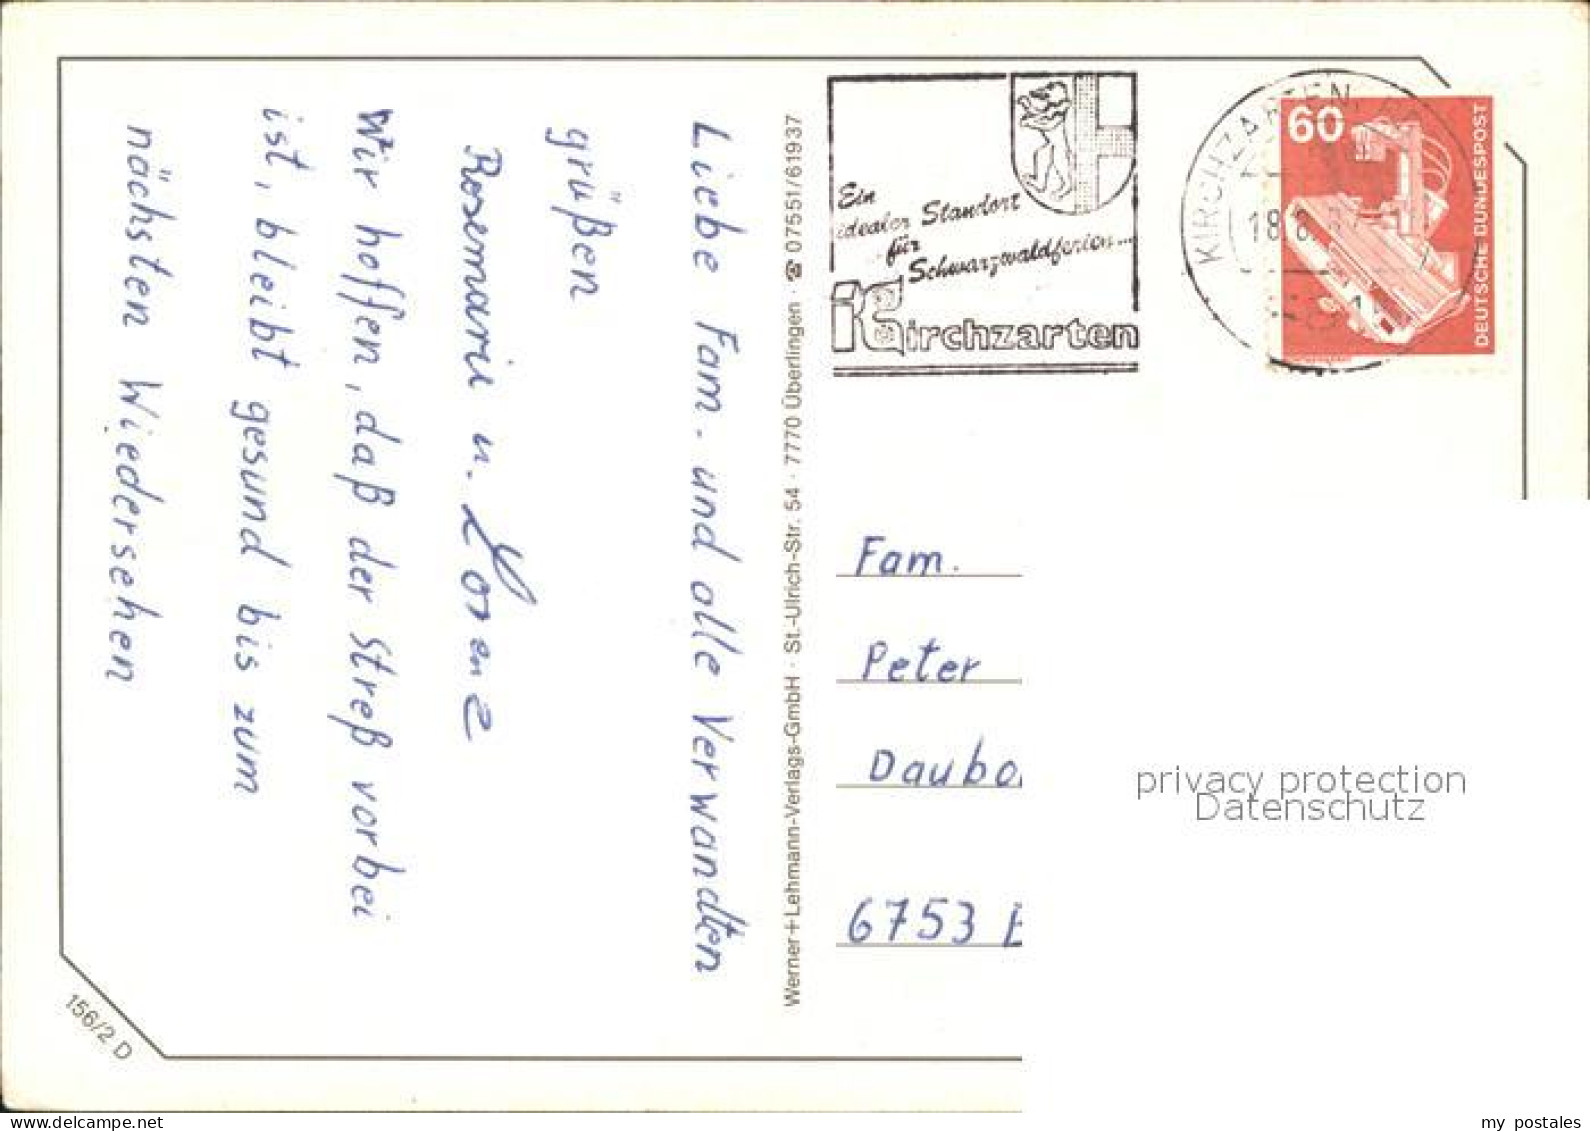 Liebe Fam. und alle Verwandten
grüßen
Rosemarie u. Lorenz
Wir hoffen, daß der Streß vorbei
ist, bleibt gesund bis zum
nächsten Wiedersehen
156/2 D
Werner+Lehmann-Verlags-GmbH · St.-Ulrich-Str. 54 · 7770 Überlingen · ☎ 07551/61937
Ein
idealer Standort
für
Schwarzwaldferien...
Kirchzarten
KIRCHZARTEN
60
DEUTSCHE BUNDESPOST
Fam.
Peter
6753
privacy protection
Datenschutz
www.delcampe.net
my_postales